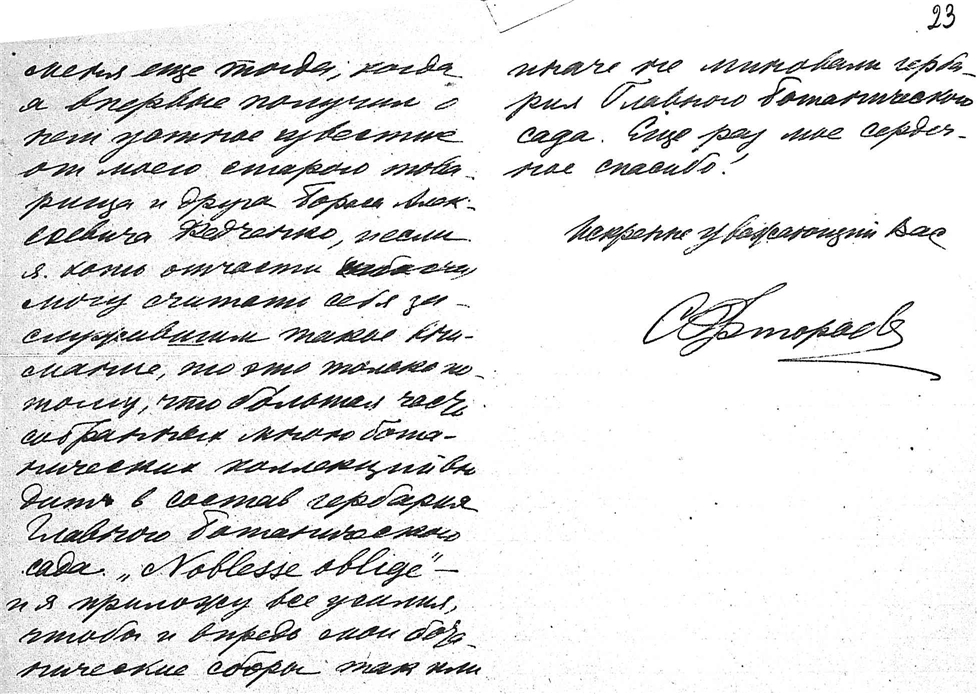 23
меня еще тогда, когда
я впервые получил о
нем частное известие
от моего старого това-
рища и друга Бориса Алек-
сеевича Федченко, и если
я хоть отчасти
могу считать себя за-
служившим такое вни-
мание, то это только по-
тому, что большая часть
собранных мною бота-
нических коллекций вхо
дит в состав гербария
Главного ботанического
сада. „Noblesse oblige" —
и я приложу все усилия,
чтобы и впредь мои бота-
нические сборы так или
иначе не миновали герба-
рия Главного ботанического
сада. Еще раз мое сердеч-
ное спасибо!
Искренне уважающий Вас